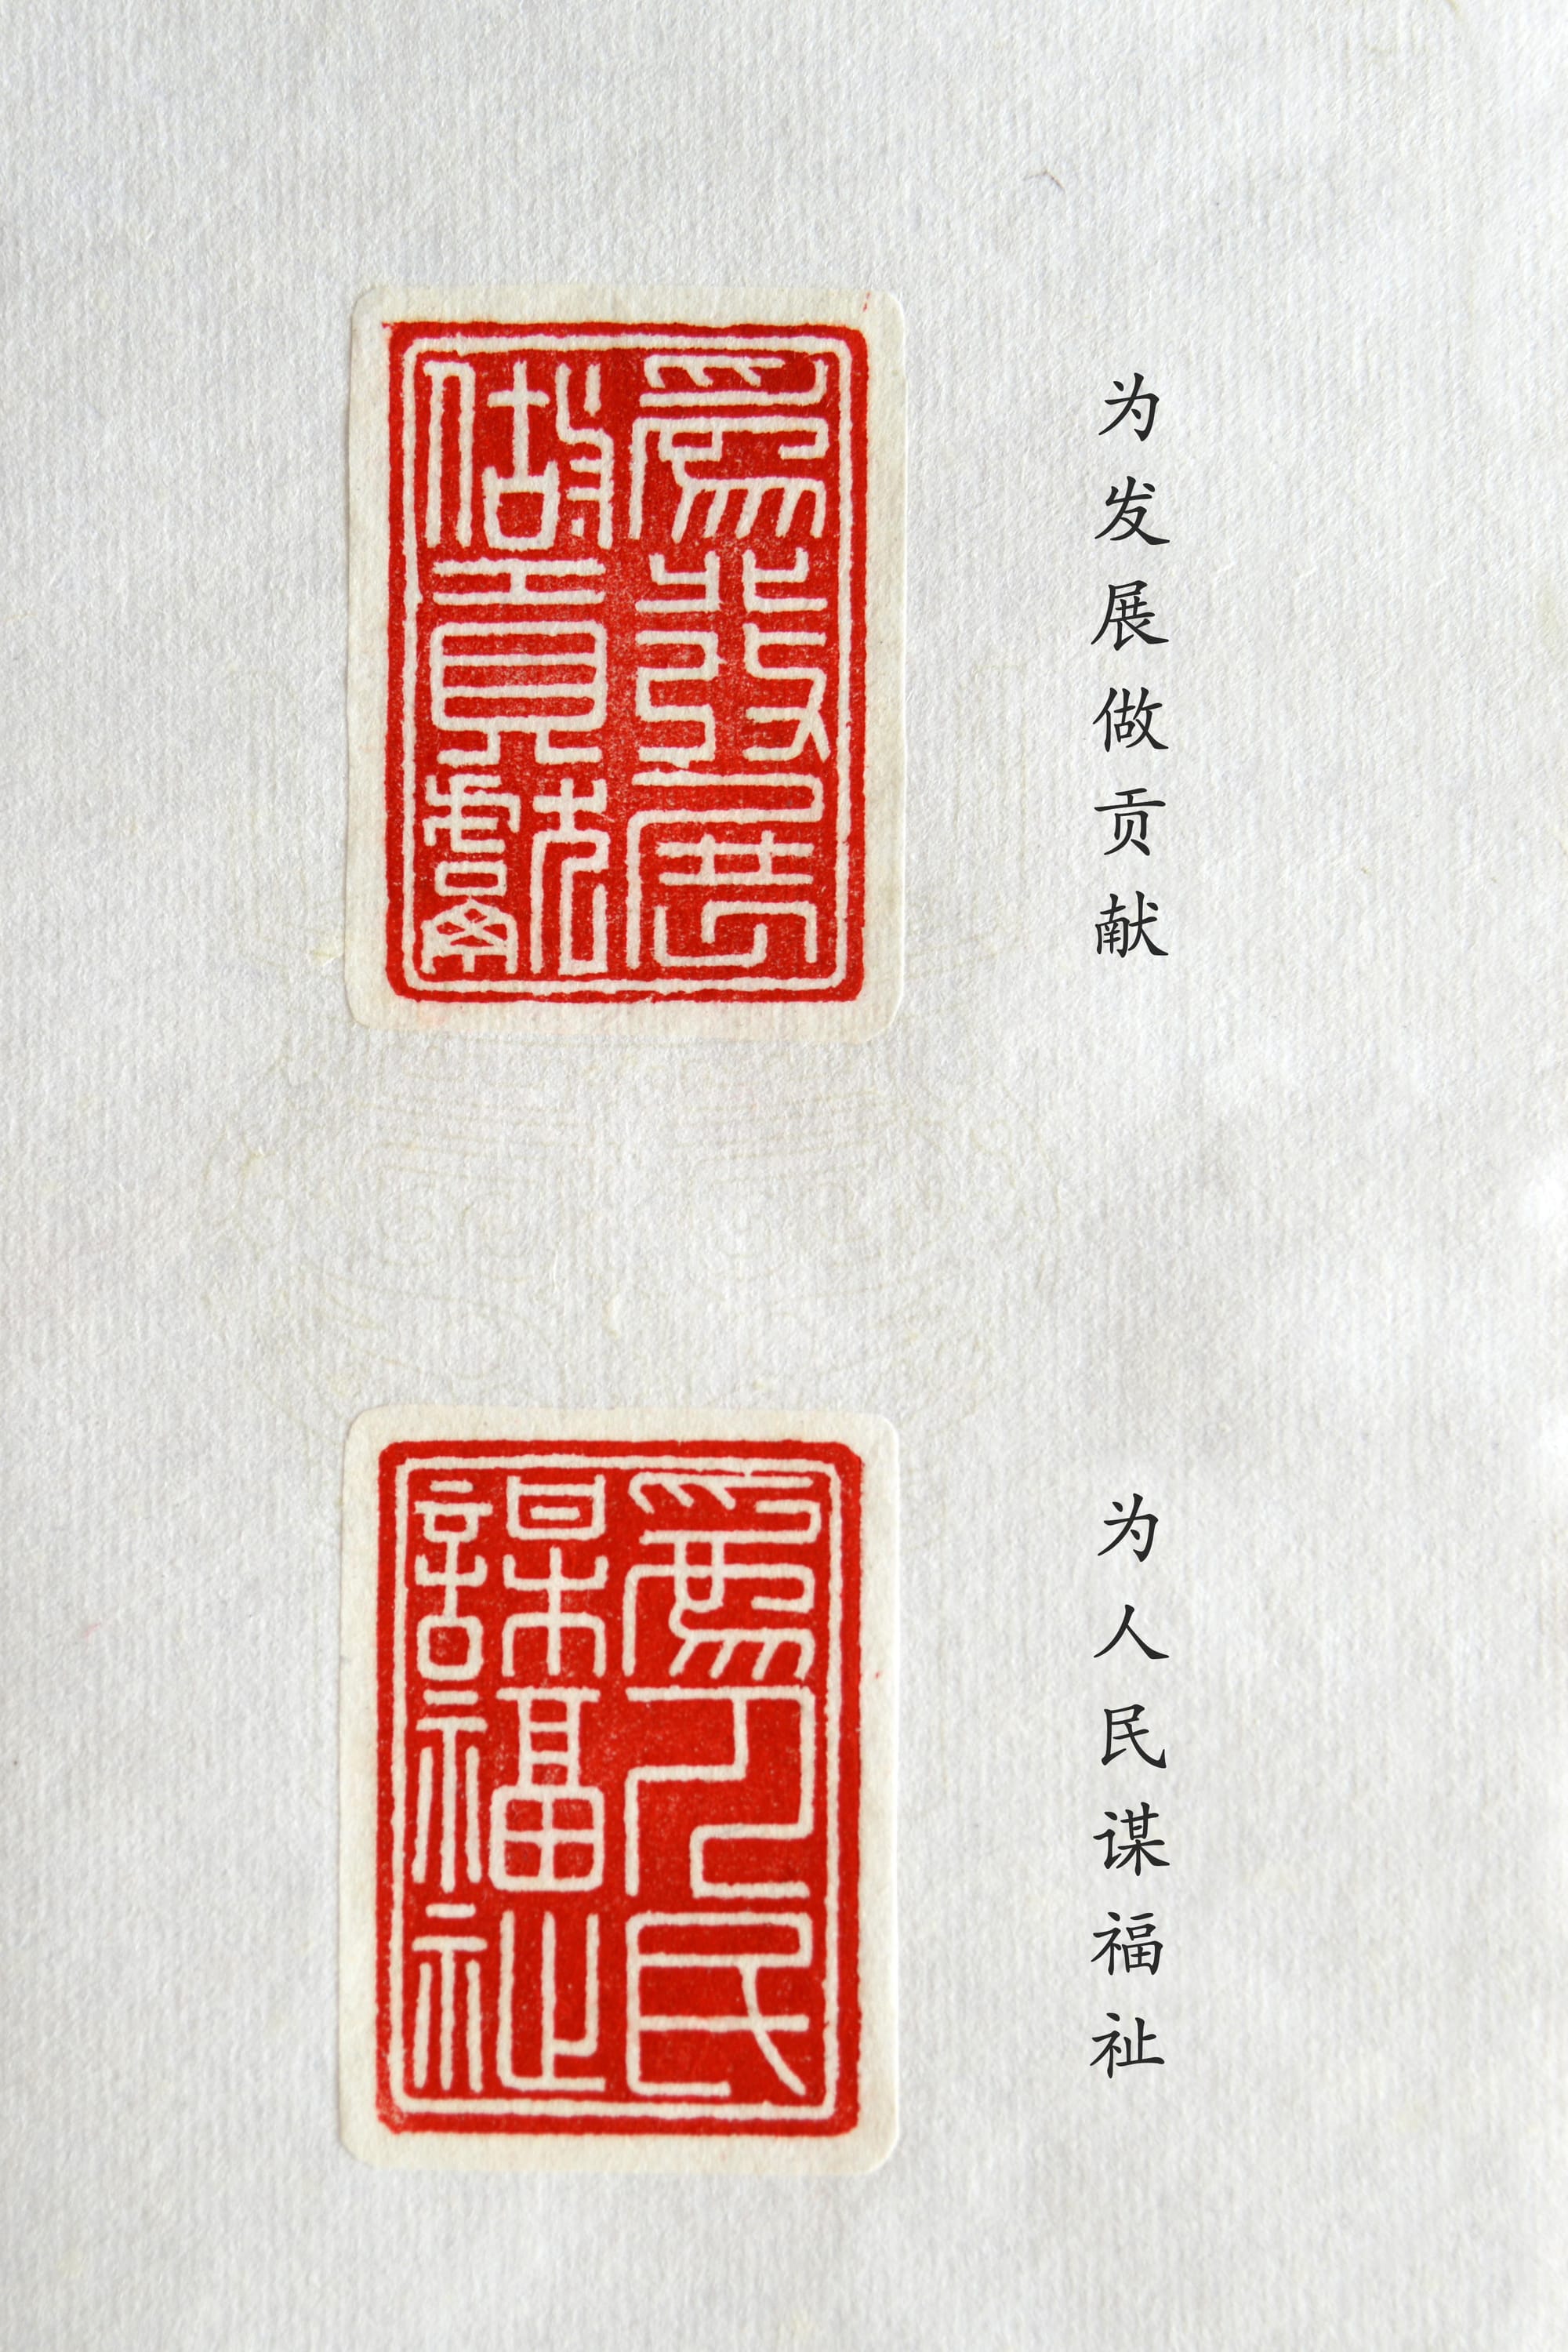 为发展做贡献
為發展
做貢獻
为人民谋福祉
為人民
謀福祉